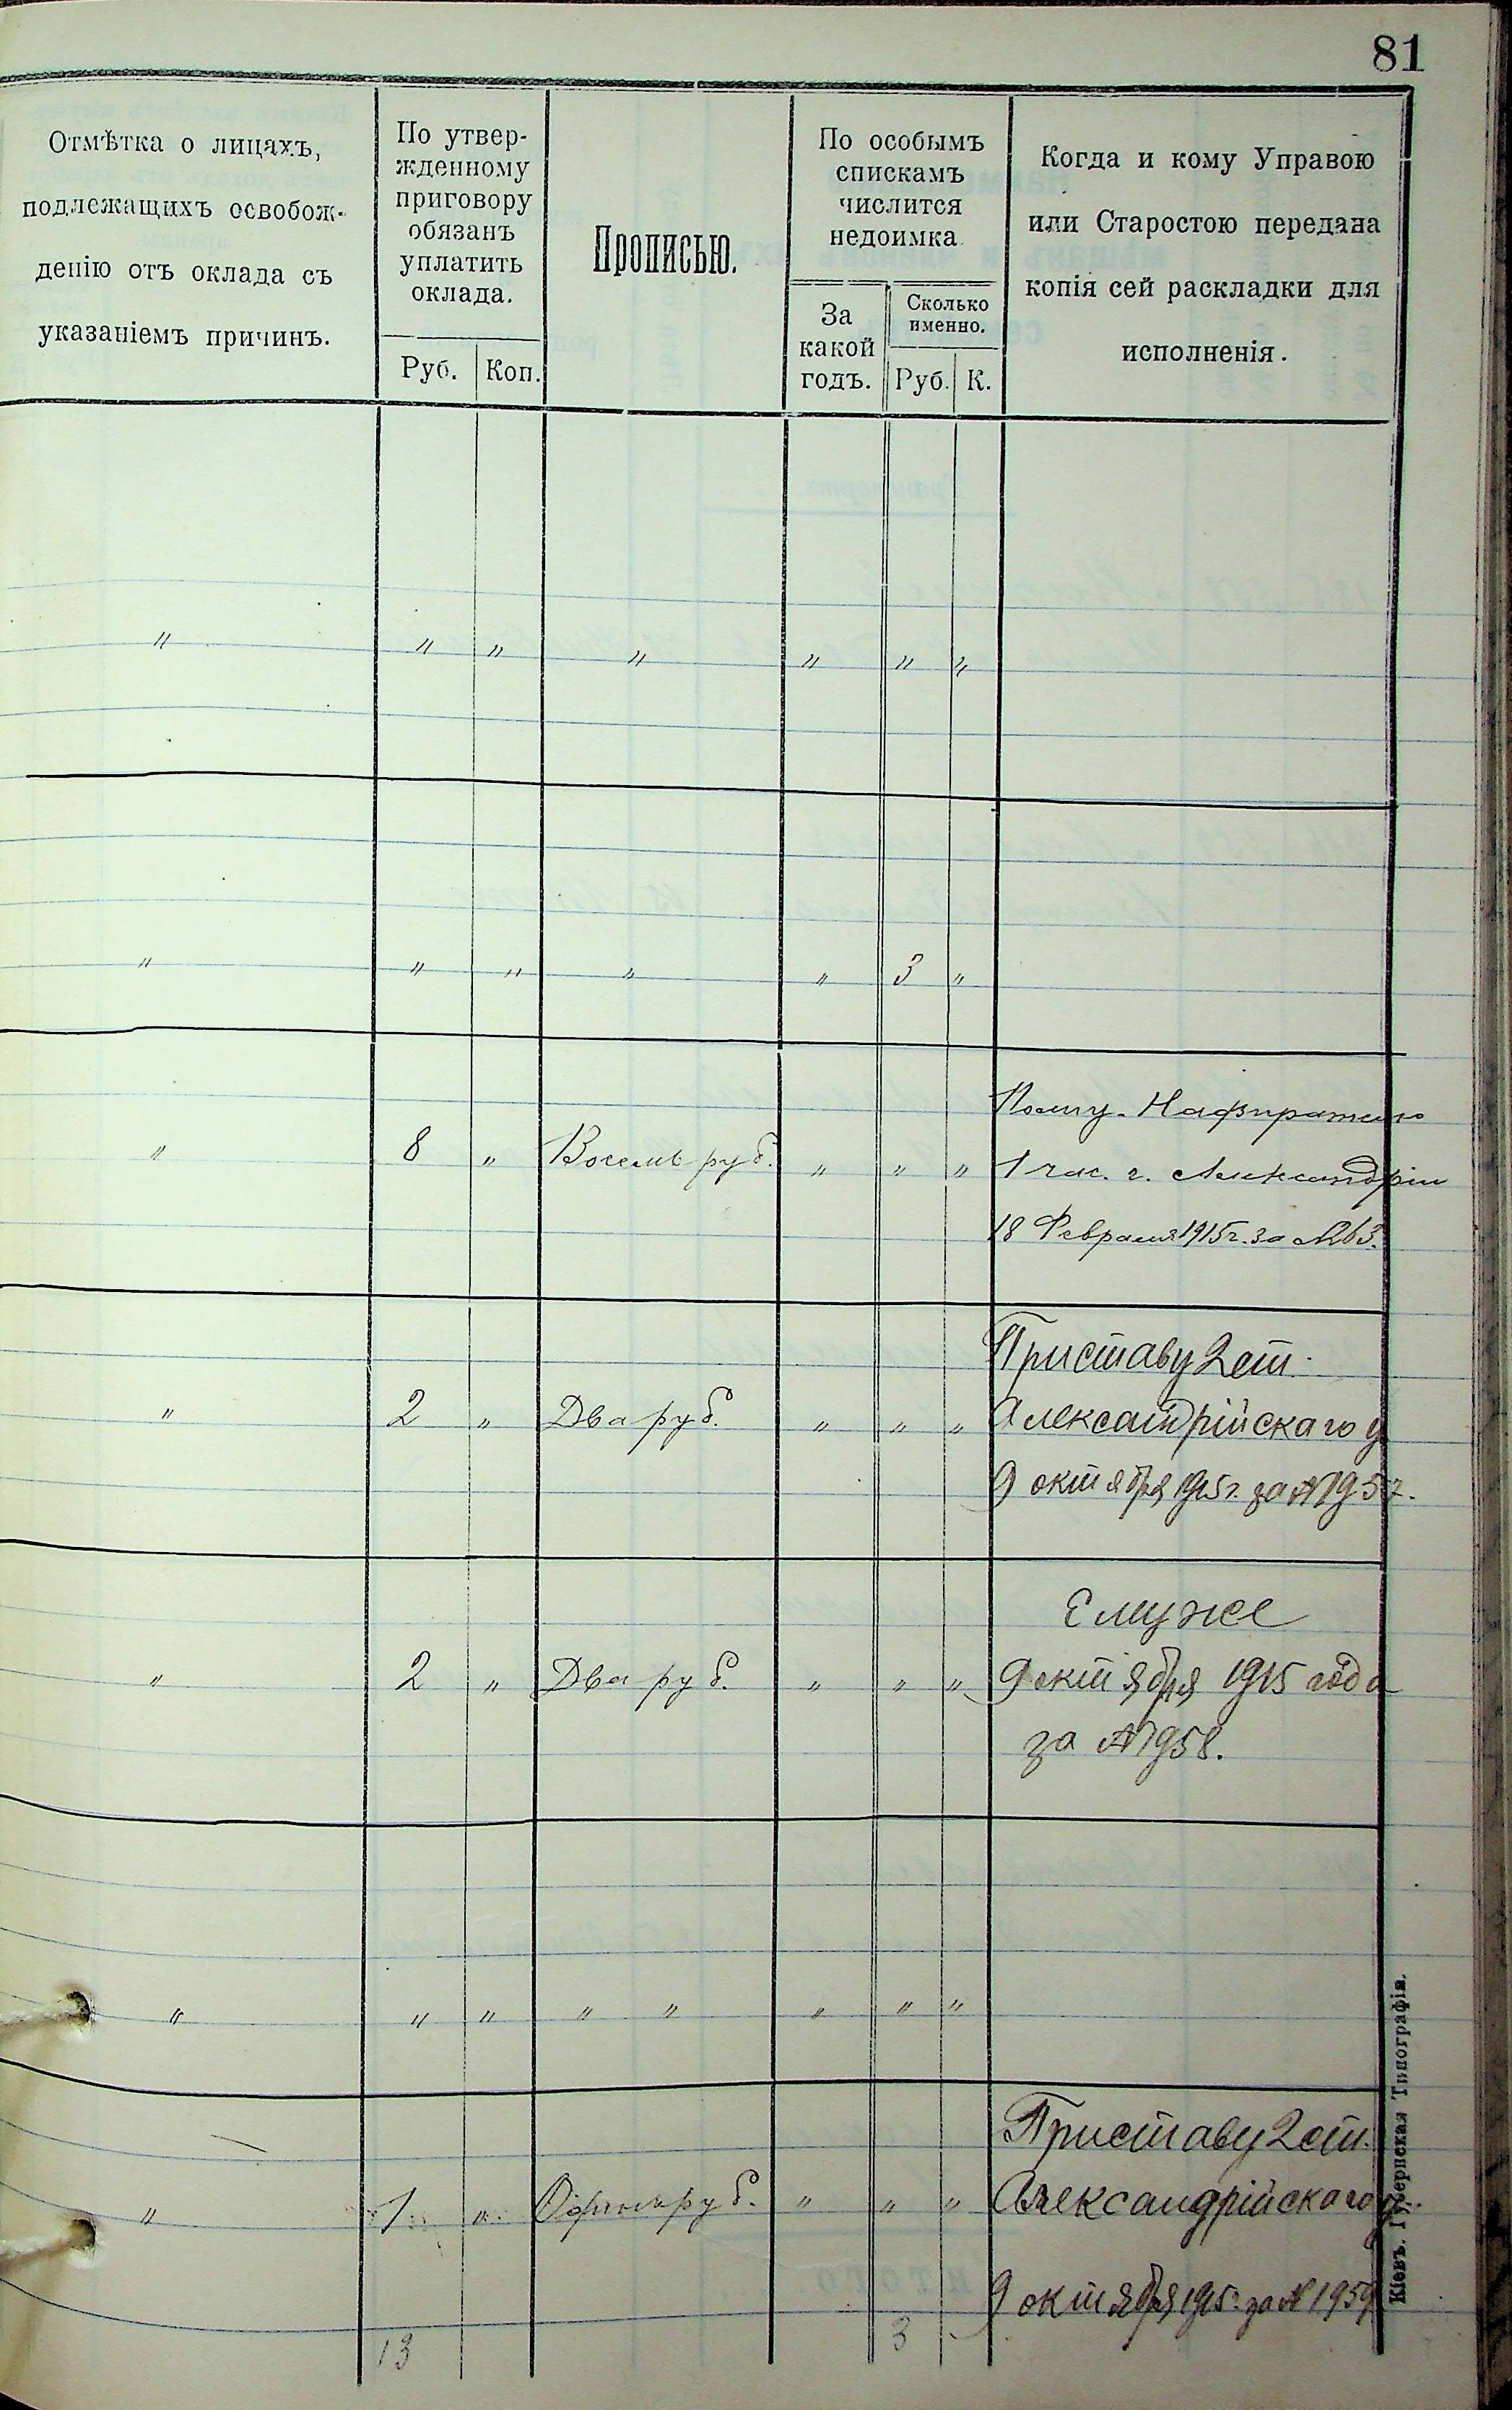 81
Отмѣтка о лицахъ,
подлежащихъ освобож-
денію отъ оклада съ
указаніемъ причинъ.
По утвер-
жденному
приговору
обязанъ
уплатить
оклада.
Руб.
Коп.
Прописью.
По особымъ
спискамъ
числится
недоимка
За
какой
годъ.
Сколько
именно.
Руб.
К.
Когда и кому Управою
или Старостою передана
копія сей раскладки для
исполненія.
" " " " " " "
" " " " " 3 "
Надзирателю
" 8 " Восемь руб. " " " 1 час. г. Александріи
18 Февраля 1915 г. за №
Приставу 2 ст.
" 2 " Два руб. " " " Александрійскаго у
9 октября 1915 г. за № 1957.
Ему же
" 2 " Два руб. " " " 9 октября 1915 года
за № 1958.
" " " " " " " "
Приставу 2 ст.
" 1 " Одинъ руб. " " " Александрійскаго у.
9 октября 1915 г. за № 1959
13 3
Кіевъ. Губернская Типографія.